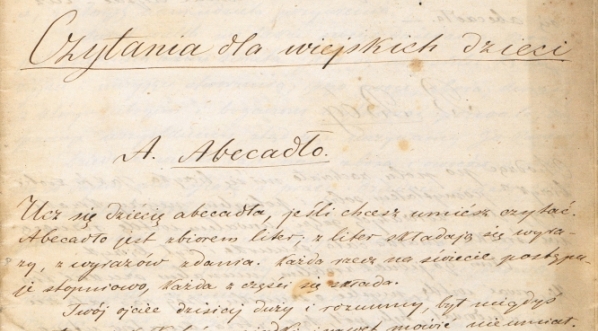 Czytania dla wiejskich dzieci
A. Abecadło.
Ucz się dziecię abecadła, jeśli chcesz umiész czytać.
Abecadło jest zbiorem liter, z liter składają się wyra-
zy, z wyrazów zdania. Każda rzecz na świecie postępu-
je stopniowo, każda z części się składa.
Twój ojciec dzisiaj duży i rozumny był niegdyś
mówić nieumiał.